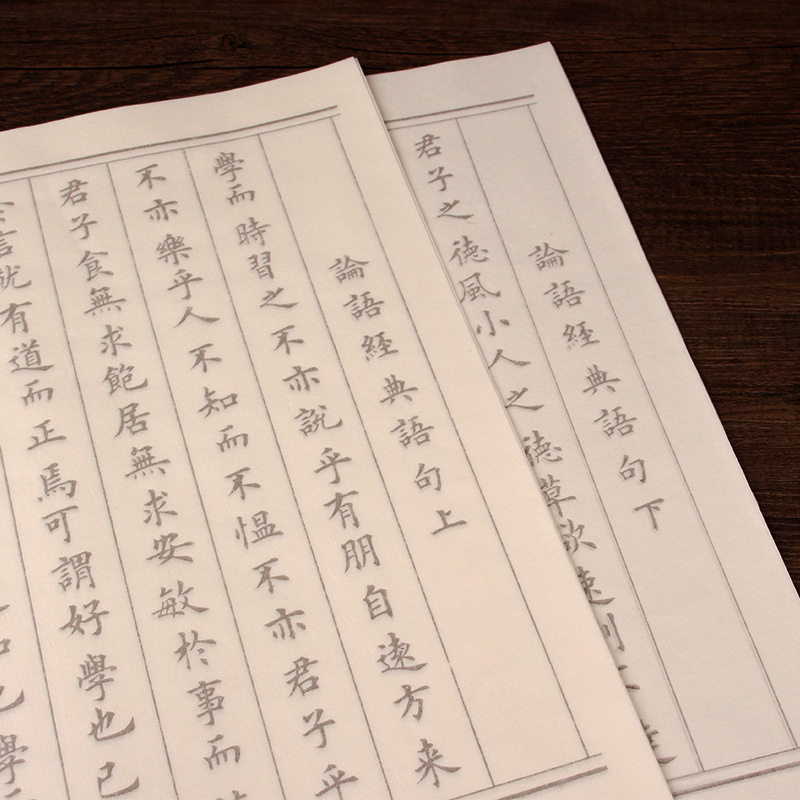 論語經典語句上
學而時習之不亦說乎有朋自遠方来
不亦樂乎人不知而不愠不亦君子乎
君子食無求飽居無求安敏於事而
言就有道而正焉可謂好學也已
已學
論語經典語句下
君子之徳風小人之徳草欲速則不